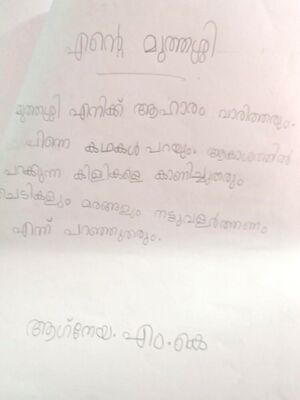 എന്റെ മുത്തശ്ശി
മുത്തശ്ശി എനിക്ക് ആഹാരം വാരിത്തരും.
പിന്നെ കഥകൾ പറയും. ആകാശത്തിൽ
പറക്കുന്ന കിളികളെ കാണിച്ചുതരും
ചെടികളും മരങ്ങളും നട്ടുവളർത്തണം
എന്ന് പറഞ്ഞുതരും.
ആഗ്നേയ. എം.കെ